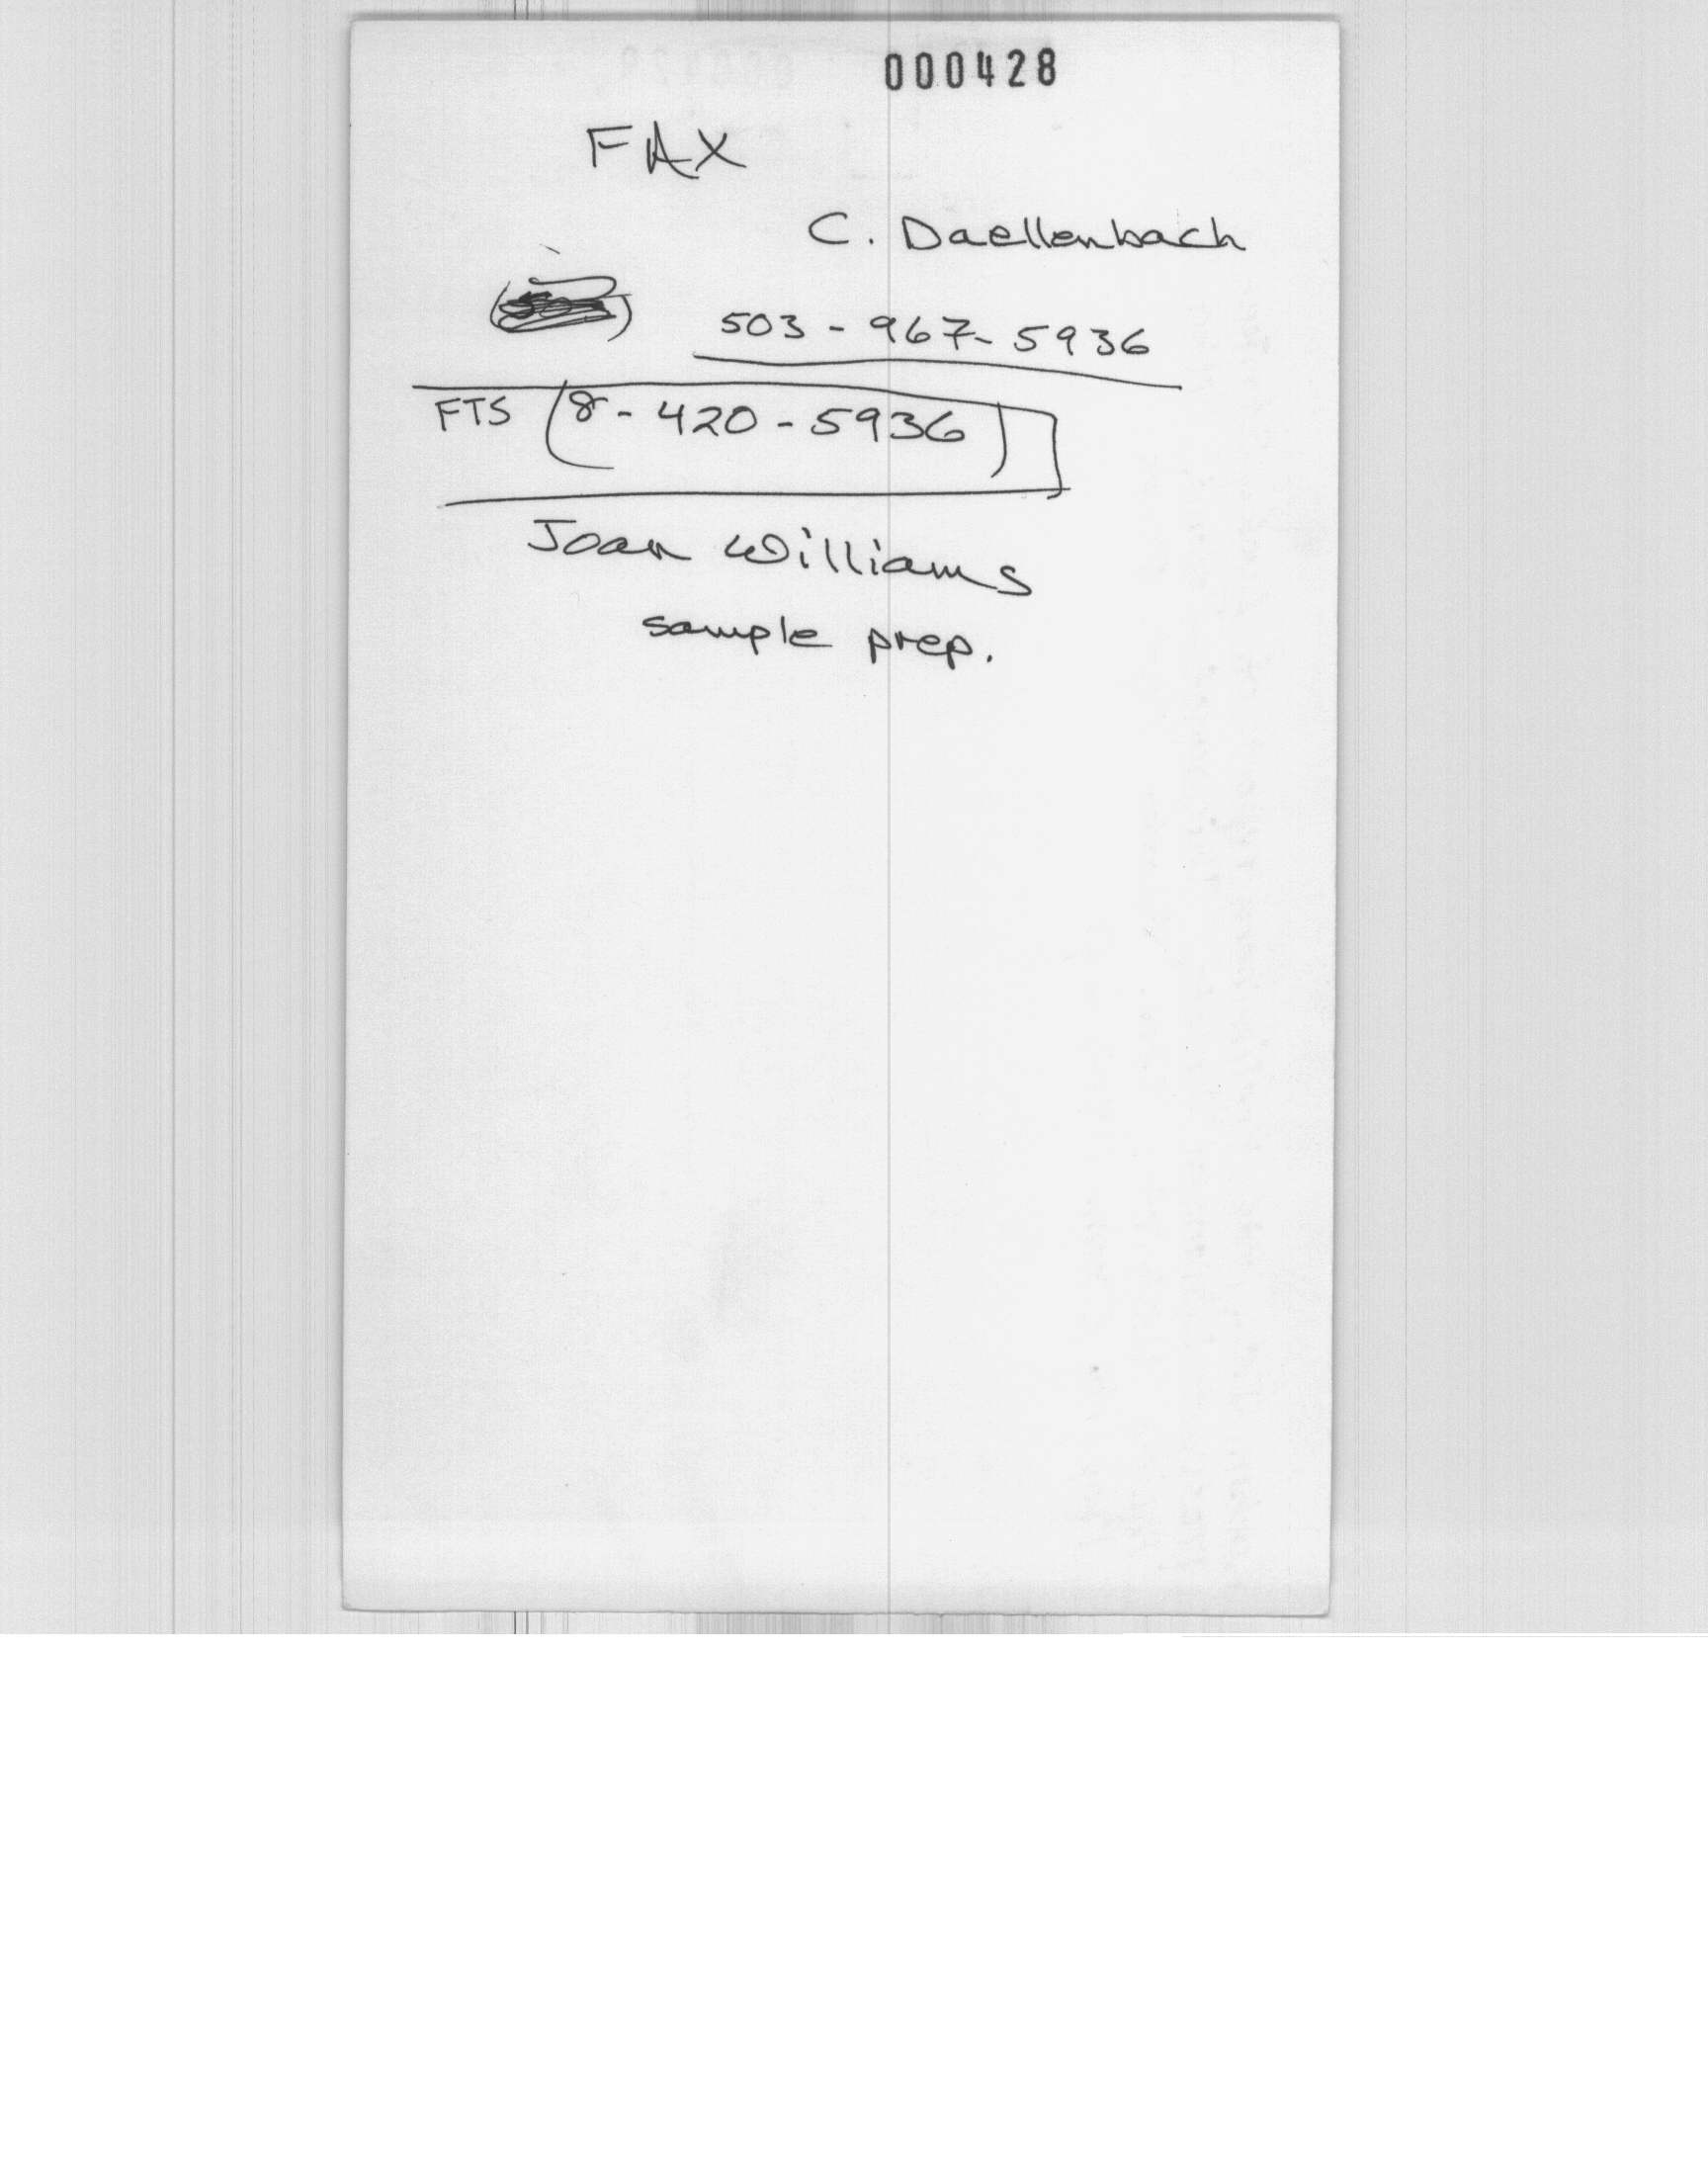 000428
FAX
C. Daellenbach
503-967-5936
FTS (8-420-5936)
Joan Williams
sample prep.